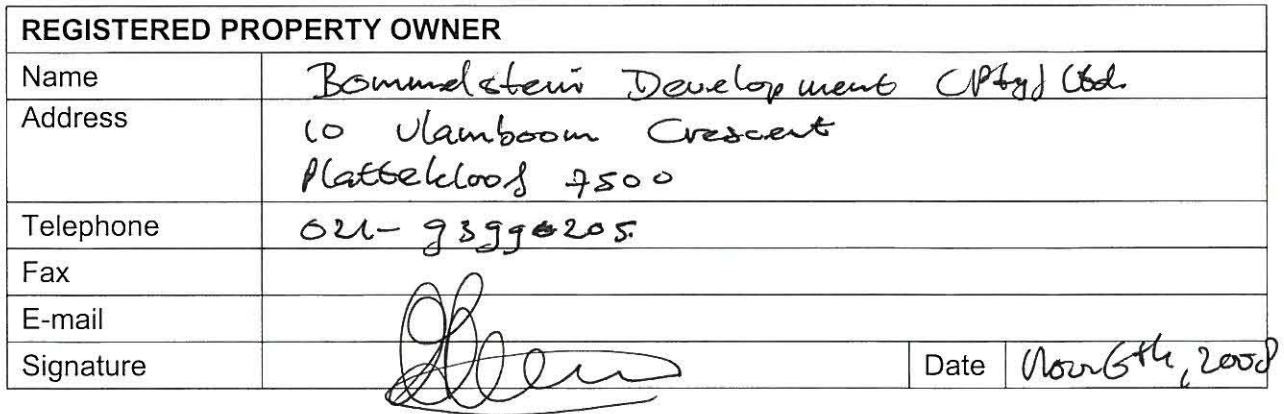 REGISTERED PROPERTY OWNER
Name Bommelstein Development (Pty) Ltd.
Address 10 Vlamboom Crescent
Plattekloof 7500
Telephone 021-93990205.
Fax
E-mail
Signature Date Nov 6th, 2008